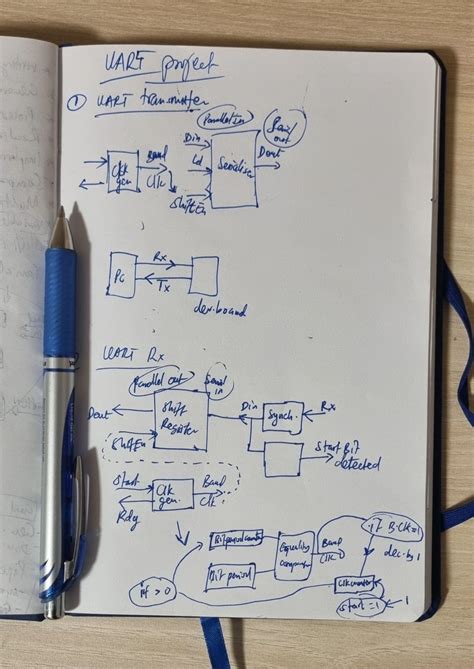 UART project
① UART transmitter
Parallel in
Serial out
Din
Ld
Shift En
Serialise
Dout
Clk gen.
Baud Clk
PC
Rx
Tx
dev. board
UART Rx
Parallel out
Serial in
Dout
Shift Register
Shift En
Din
Synch.
Rx
Start Bit detected
start
Rdy
Clk gen.
Baud Clk.
Bit period
Equality
Baud Clk
if B.Clk=1
dec. by 1
if > 0
start = 1
1